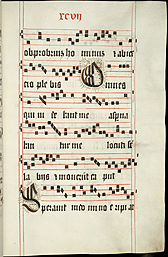 xcvii
obprobrius ho minuz z abiec
cio ple bis Omnes
qui vi de bant me asp na
ban tur me locuti st
la bijs z mouerūt ca put
Sperauit in do mi no e ripi at